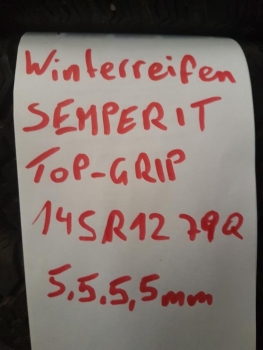 Winterreifen
SEMPERIT
TOP-GRIP
145R12 79Q
5.5.5,5mm